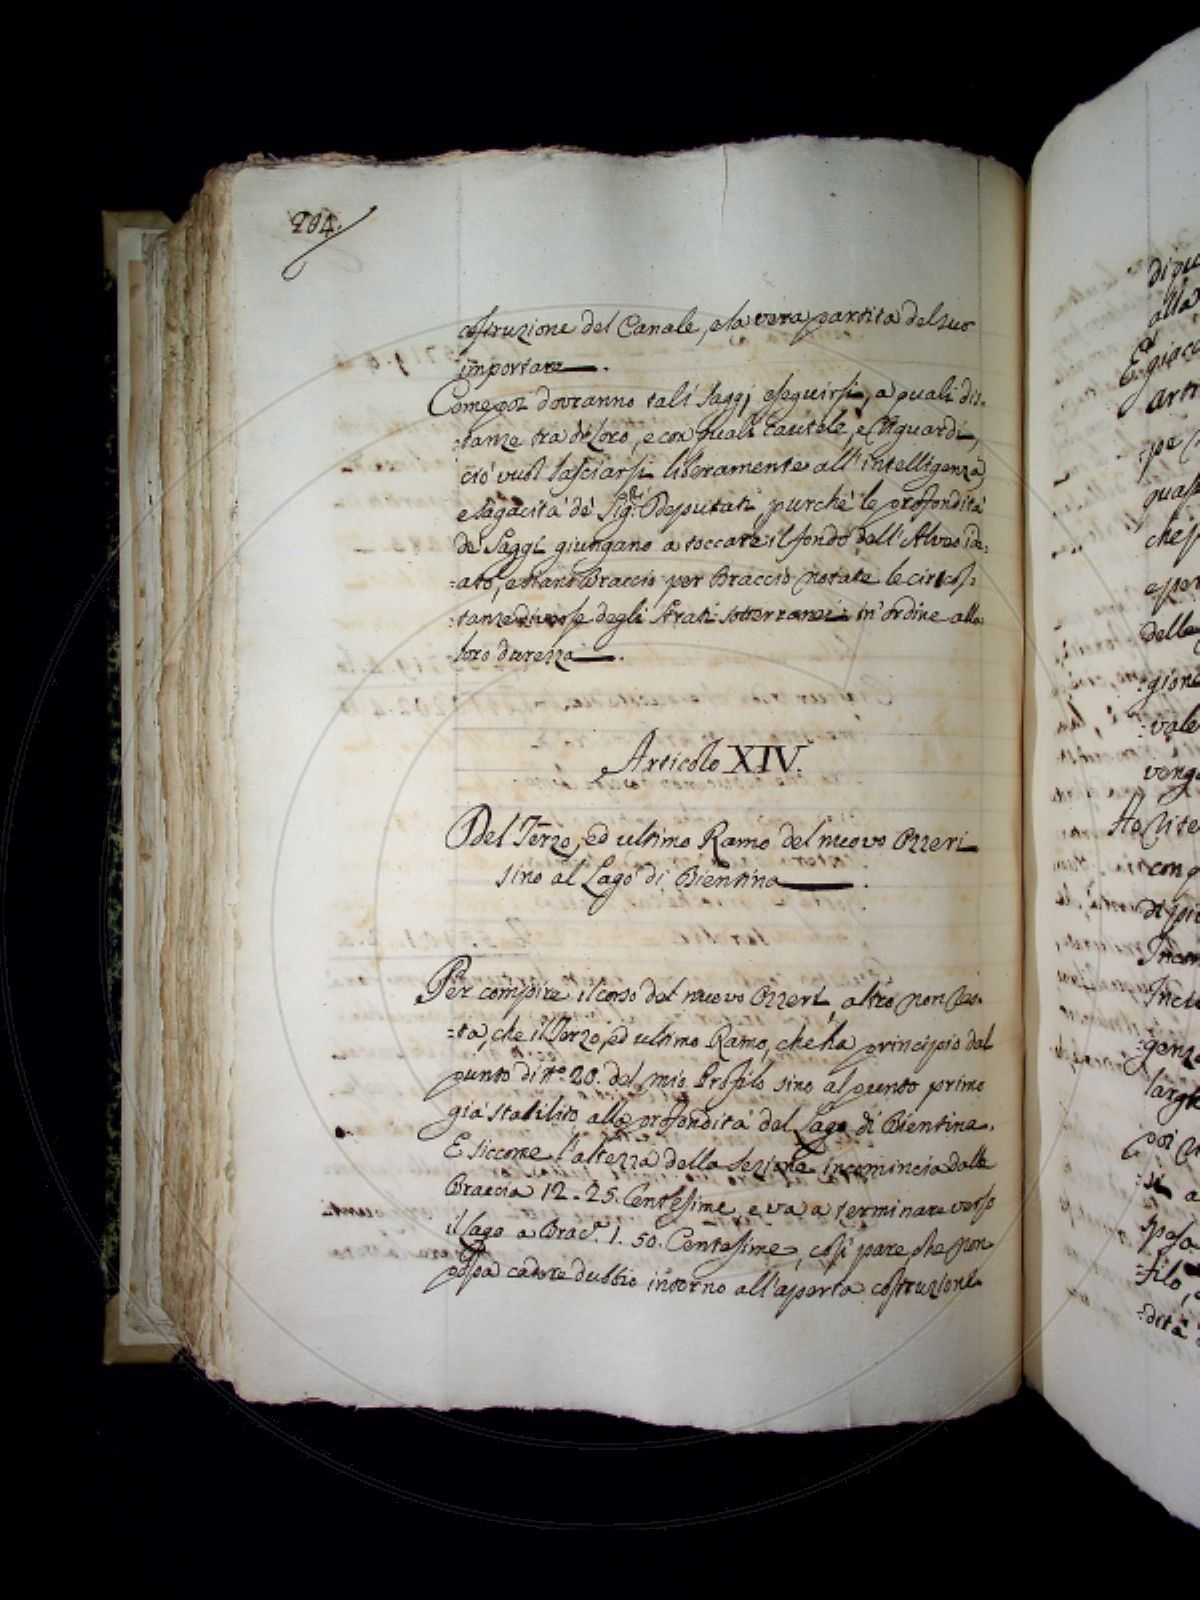 204.
costruzione del Canale, e la vera partita del suo
importare.
Come poi dovranno tali Saggj eseguirsi, a quali dis-
-tanze tra di loro, e con quali Cautele, e Riguardi,
ciò vuol lasciarsi liberamente all'intelligenza
e sagacità de' Sigri Deputati, purchè le profondità
de Saggi giungano a toccare il fondo dell'Alveo ide-
-ato, e siano Braccio per Braccio notate le circos-
-tanze diverse degli strati sotterranei in ordine alla
loro durezza.
Articolo XIV.
Del Terzo, ed ultimo Ramo del nuovo Ozzeri
sino al Lago di Bientina.
Per compire il corso del nuovo Ozzeri, altro non res-
-ta, che il Terzo, ed ultimo Ramo, che ha principio dal
punto di No. 20. del mio Profilo sino al punto primo
già stabilito alla profondità del Lago di Bientina.
E siccome l'altezza della sezione incomincia dalle
Braccia 12.25. Centesime, e va a terminare verso
il Lago a Braca. 1.50. Centesime, così pare che non
possa cadere dubbio intorno all'aperta costruzione
di
alla
E
giac
arti
pe
quas
che
e per
della
-gion
-vale
veng
con